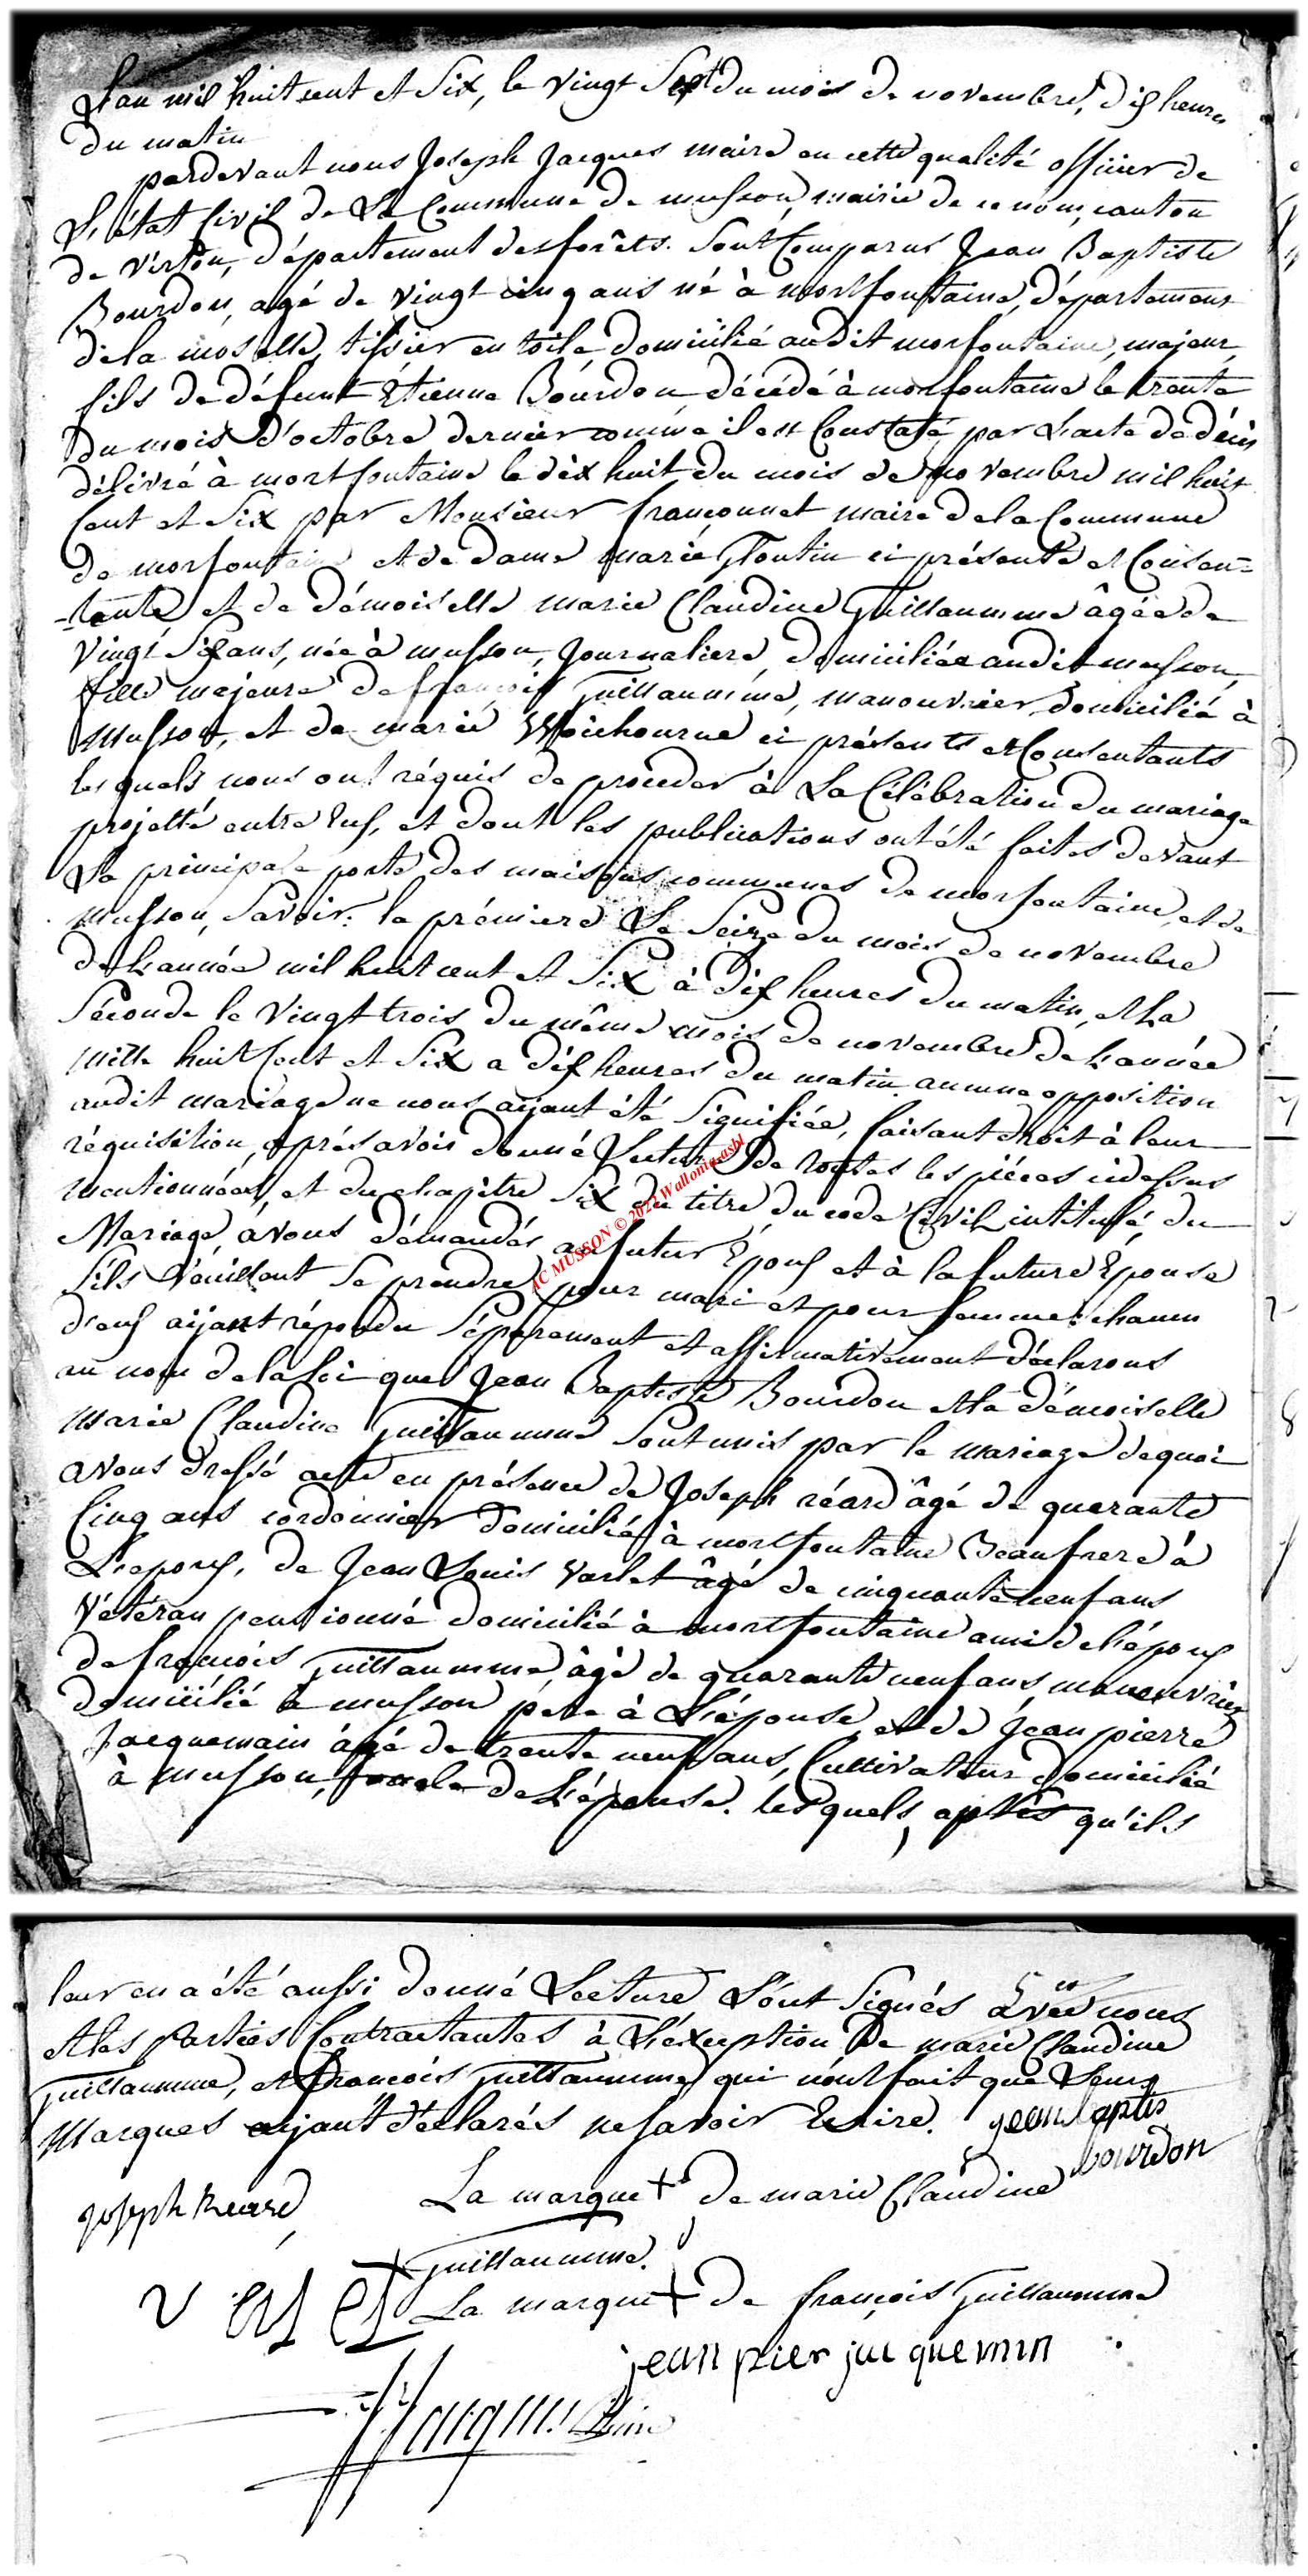 L'an mil huit cent et Six, le vingt Sept du mois de novembre, dix heures
du matin
pardevant nous Joseph Jacques maire en cette qualité officier de
L'état Civil de La Commune de musson, mairie de ce nom, canton
de Virton, département des forêts. Sont Comparus Jean Baptiste
Bourdon, agé de vingt cinq ans né à mortfontaine, département
de la moselle, tissier en toile, domicilié audit morfontaine, majeur,
fils de défunt Etienne Bourdon décédé à morfontaine le trente
du mois d'octobre dernier comme il est Constaté par L'acte de décès
délivré à mortfontaine le dix huit du mois de novembre mil huit
Cent et Six par Monsieur françonnet maire de la Commune
de morfontaine et de dame marie ci présente et Consen=
-tante, et de démoiselle marie Claudine Guillaumme âgée de
Vingt Six ans, née à musson, Journaliere, domiciliée audit musson,
fille majeure de françois Guillaumme, manouvrier, domicilié à
Musson, et de marie ci présents et Consentants
lesquels nous ont réquis de proceder à La Célébration du mariage
projetté entre Eux, et dont les publications ont été faites devant
La principale porte des maisons communes de morfontaine, et de
musson, Savoir: la prémiere Le Seize du mois de novembre
de L'année mil huit cent et Six à Dix heures du matin, et La
Séconde le Vingt trois du même mois de novembre de L'année
mille huit Cent et Six a dix heures du matin aucune opposition
audit mariage ne nous aÿant été Signifiée, faisant droit à leur
réquisition, aprés avoir donné Lecture de toutes les piéces cidessus
mentionnées, et du chapitre Six du titre du code Civil intitulé, du
Mariage, avons démandés au futur Epoux et à la future Epouse
S'ils Veuillent Se prendre pour mari et pour femme: chacun
d'eux aÿant répondu Séparement et affirmativement déclarons
au nom de la loi que Jean Baptiste Bourdon et la démoiselle
Marie Claudine Guillaumme Sont unis par le mariage dequoi
avons dressé acte en présence de Joseph réard âgé de quarante
Cinq ans cordonnier domicilié à mortfontaine Beaufrere à
L'epoux, de Jean Louis Varlet âgé de cinquante neuf ans
Vétéran pensionné domicilié à mortfontaine ami de L'époux
de françois Guillaumme, âgé de quarante neuf ans, manouvrier
domicilié à musson pére à L'épouse, et de Jean pierre
Jacquemain âgé de trente neuf ans, Cultivateur domicilié
à Musson, de L'épouse. lesquels, aprés qu'ils
leur en a été aussi donné Lecture L'ont Signés avec nous
et les Parties Contractantes à L'éxception De marie Claudine
Guillaumme, et François Guillaumme qui n'ont fait que Leurs
Marques aÿant déclarés ne Savoir Ecrire. jean baptis
bourdon
joseph Reard La marque + de marie Claudine
Guillaumme.
La marque + de françois Guillaumme
jean pier jacquemin
Jacques Maire
AC MUSSON © 2022 Wallonia-asbl